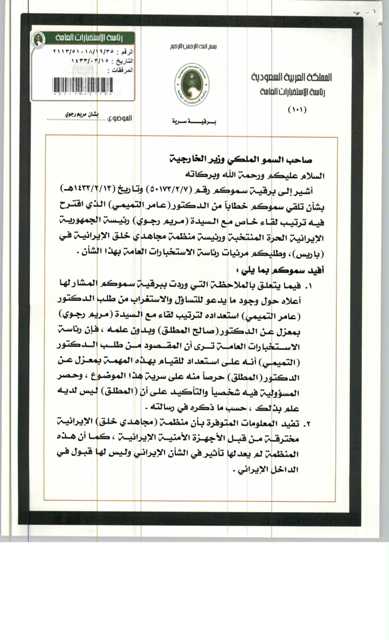 رئاسة الاستخبارات العامة
الرقم :
التاريخ : ١٤٣٣/٠٣/١٥
المرفقات :
الموضوع : بشأن مريم رجوي
بسم الله الرحمن الرحيم
المملكة العربية السعودية
رئاسة الاستخبارات العامة
(١٠١)
برقية سرية
صاحب السمو الملكي وزير الخارجية
السلام عليكم ورحمة الله وبركاته
أشير إلى برقية سموكم رقم (٥٠١٧٣/٢/٧) وتاريخ (١٤٣٣/٢/١٣هـ)
بشأن تلقي سموكم خطاباً من الدكتور (عامر التميمي) الذي اقترح
فيه ترتيب لقاء خاص مع السيدة (مريم رجوي) رئيسة الجمهورية
الإيرانية الحرة المنتخبة ورئيسة منظمة مجاهدي خلق الإيرانية في
(باريس)، وطلبكم مرئيات رئاسة الاستخبارات العامة بهذا الشأن .
أفيد سموكم بما يلي :
١. فيما يتعلق بالملاحظة التي وردت ببرقية سموكم المشار لها
أعلاه حول وجود ما يدعو للتساؤل والاستغراب من طلب الدكتور
(عامر التميمي) استعداده لترتيب لقاء مع السيدة (مريم رجوي)
بمعزل عن الدكتور (صالح المطلق) وبدون علمه ، فإن رئاسة
الاستخبارات العامة ترى أن المقصود من طلب الدكتور
(التميمي) أنه على استعداد للقيام بهذه المهمة بمعزل عن
الدكتور (المطلق) حرصاً منه على سرية هذا الموضوع ، وحصر
المسؤولية فيه شخصياً والتأكيد على أن (المطلق) ليس لديه
علم بذلك ، حسب ما ذكره في رسالته .
٢. تفيد المعلومات المتوفرة بأن منظمة (مجاهدي خلق) الإيرانية
مخترقة من قبل الأجهزة الأمنية الإيرانية ، كما أن هذه
المنظمة لم يعد لها تأثير في الشأن الإيراني وليس لها قبول في
الداخل الإيراني .